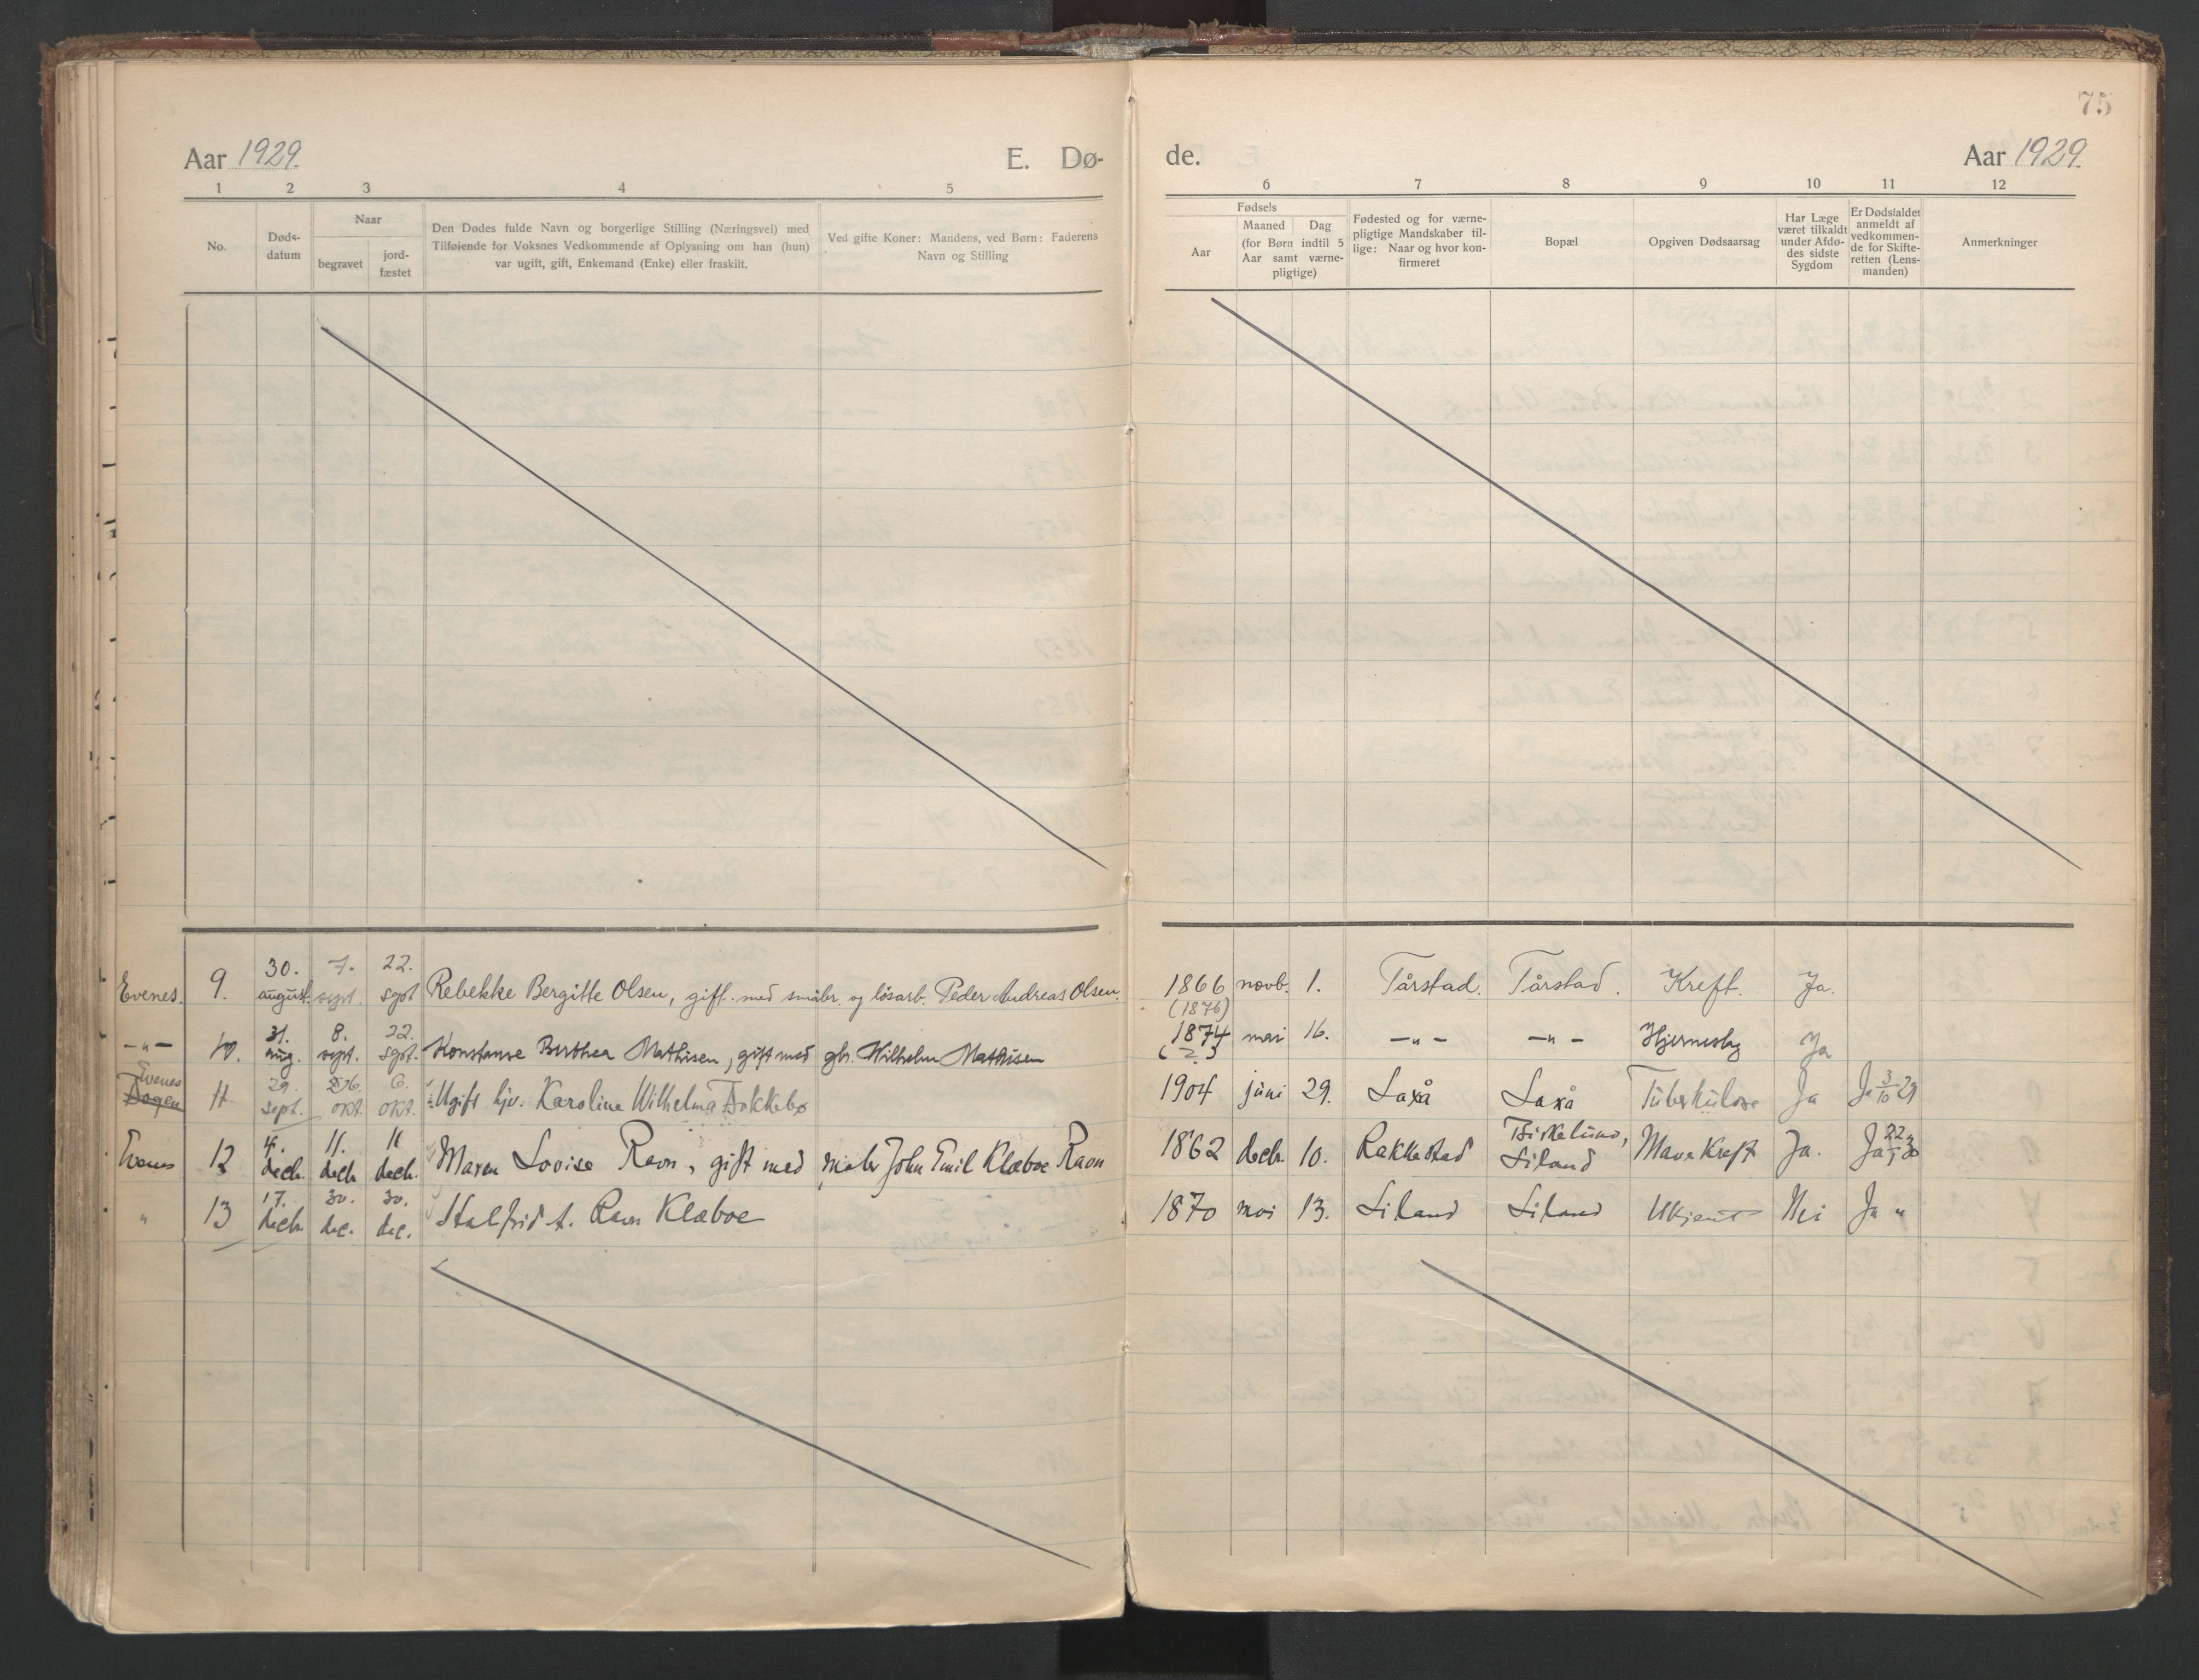 75
Aar 1929. E. Dø- de. Aar 1929.
1 2 3 4 5 6 7 8 9 10 11 12
No.
Døds-
datum
Naar
begravet
jord-
fæstet
Den Dødes fulde Navn og borgerlige Stilling (Næringsvei) med
Tilføiende for Voksnes Vedkommende af Oplysning om han (hun)
var ugift, gift, Enkemand (Enke) eller fraskilt.
Ved gifte Koner: Mandens, ved Børn: Faderens
Navn og Stilling
Fødsels
Aar
Maaned Dag
(for Børn indtil 5
Aar samt værne-
pligtige)
Fødested og for værne-
pligtige Mandskaber til-
lige: Naar og hvor kon-
firmeret
Bopæl
Opgiven Dødsaarsag
Har Læge
været tilkaldt
under Afdø-
des sidste
Sygdom
Er Dødsfaldet
anmeldt af
vedkommen-
de for Skifte-
retten (Lens-
manden)
Anmerkninger
30. 7. 22.
Evenes. 9. august. sept. sept Rebekke Bergitte Olsen, gift med småbr. og løsarb. Peder Andreas Olsen. 1866 novb. 1. Tårstad. Tårstad. Kreft. Ja.
(1876)
31. 8. 22. 1874
-"- 10. aug. sept. sept. Konstanse Berthea Mathisen, gift med gbr. Wilhelm Mathisen mai 16. -"- -"- Hjernesyg Ja
(?)
Evenes 29. 6. 6.
Bogen 11 sept. okt. okt. Ugift hjv. Karoline Wilhelma Bokkebø 1904 juni 29. Laxå Laxå Tuberkulose Ja Ja 3/10 29
4. 11. 11 Birkelund,
Evenes 12 decb. decb decb. Maren Lovise Ravn, gift med maler John Emil Klæboe Ravn 1862 decb. 10. Rakkestad Liland Mavekreft Ja. Ja 22/1 30
17. 30. 30.
" 13 decb dec. dec. Halfrid A. Ravn Klæboe 1870 mai 13. Liland Liland Ukjent Nei Ja "